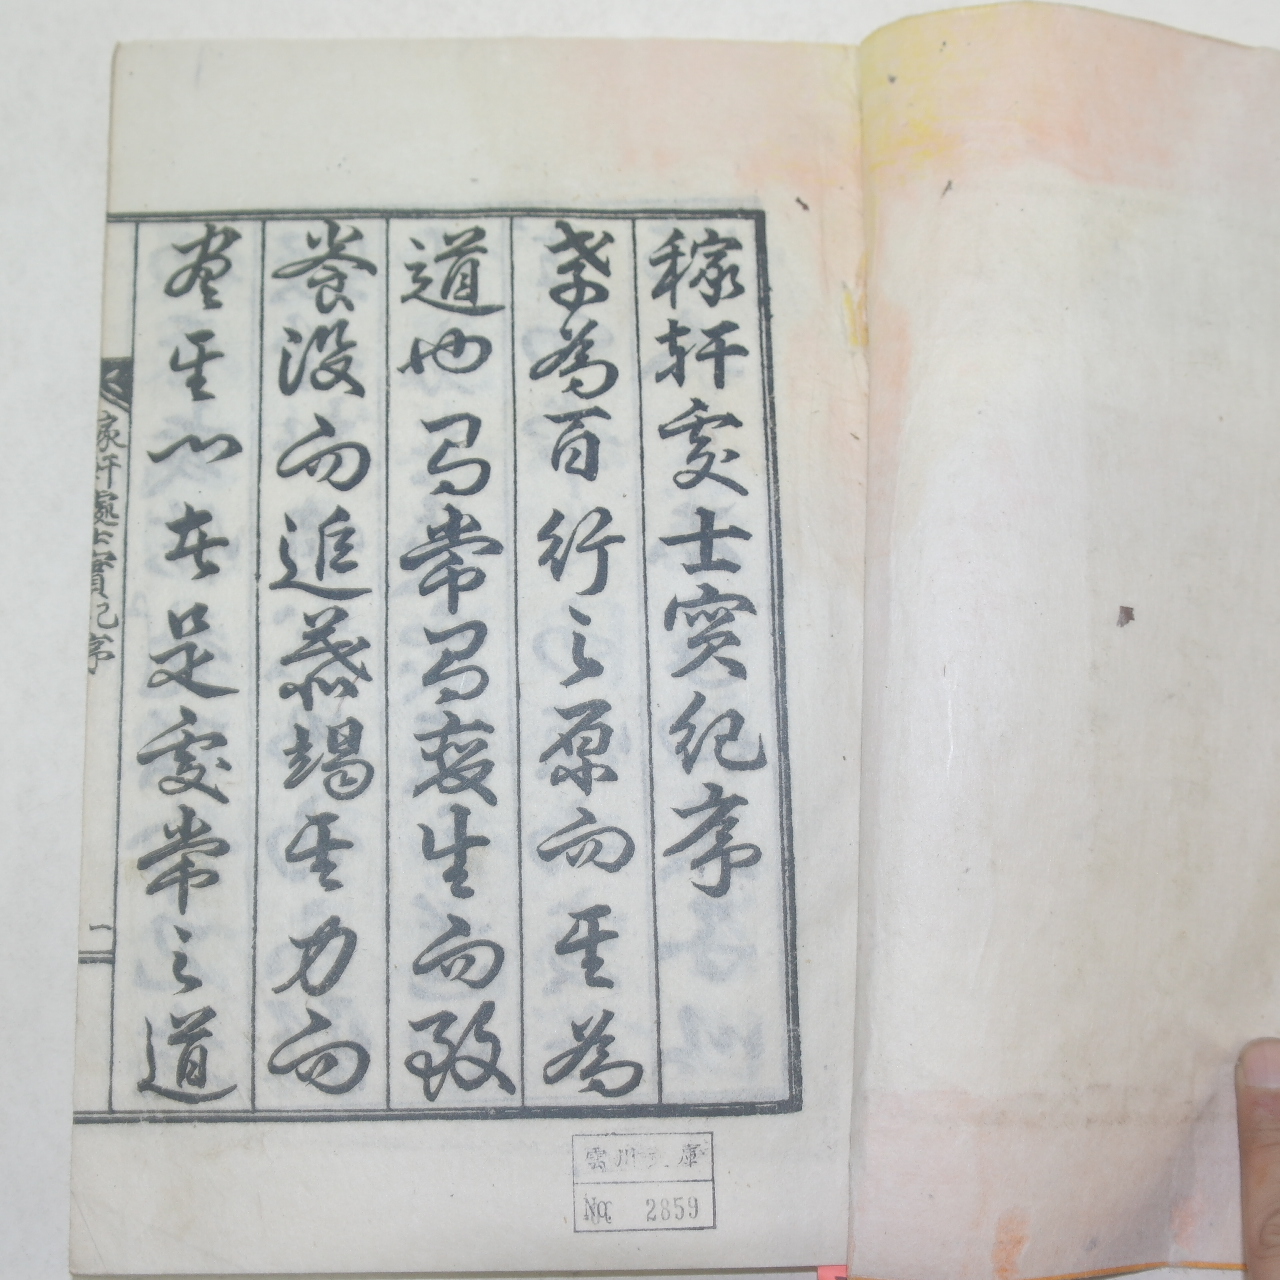 稼軒處士實紀序
孝為百行之原而其為
道也有常有變生而致
養沒而追慕竭其力而
盡其心者是處常之道
稼軒處士實紀序
一
雲川文庫
No. 2859